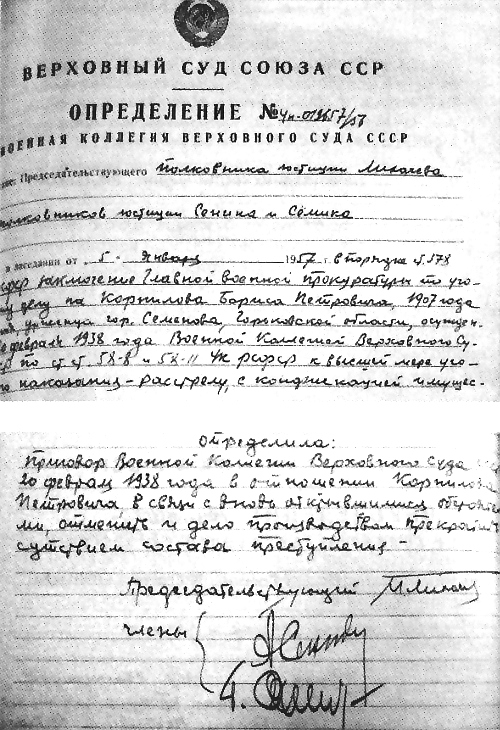 ВЕРХОВНЫЙ СУД СОЮЗА ССР
ОПРЕДЕЛЕНИЕ № 4н-019657/57
ВОЕННАЯ КОЛЛЕГИЯ ВЕРХОВНОГО СУДА СССР
Председательствующего полковника юстиции Лихачева
полковников юстиции Сенина и Семика
в заседании от „5“ января 1957 г. в порядке ст. 378
заключение Главной военной прокуратуры по уго-
делу на Корнилова Бориса Петровича, 1907 года
уроженца гор. Семенова, Горьковской области, осужден.
февраля 1938 года Военной Коллегией Верховного Су-
по ст.ст. 58-8 и 58-11 УК РСФСР к высшей мере уго-
наказания – расстрелу, с конфискацией имущес-
определила:
Приговор Военной Коллегии Верховного Суда
20 февраля 1938 года в отношении Корнилова
Петровича, в связи с вновь открывшимися обстоятель
ми, отменить и дело производством прекратить
сутствием состава преступления –
Председательствующий
члены